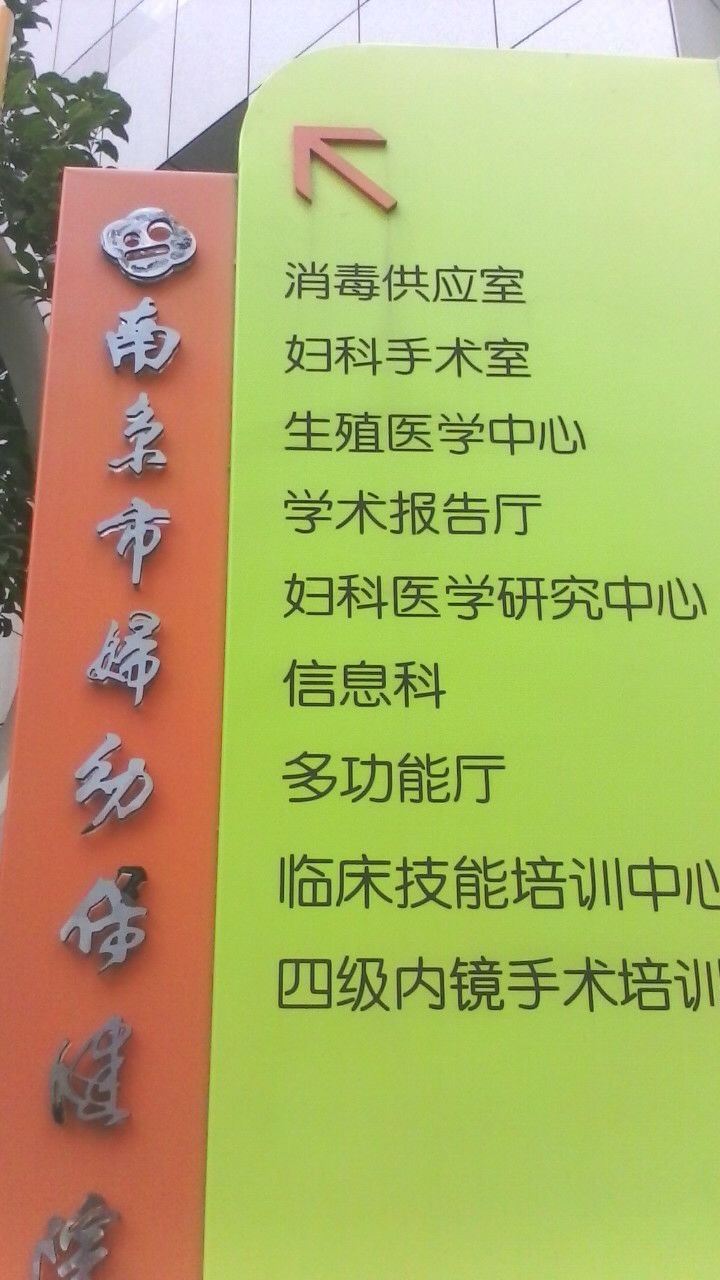 南京市婦幼保健院
消毒供应室
妇科手术室
生殖医学中心
学术报告厅
妇科医学研究中心
信息科
多功能厅
临床技能培训中心
四级内镜手术培训